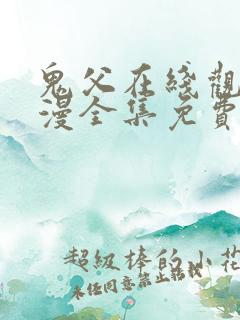 鬼父在线觀
漫全集免費
超級棒的小花
未经同意禁止转载